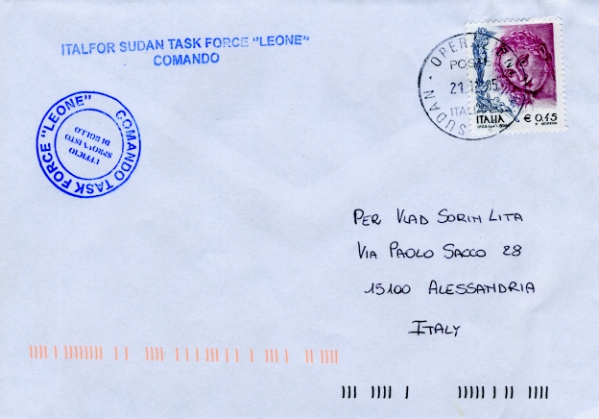 ITALFOR SUDAN TASK FORCE "LEONE"
COMANDO
COMANDO TASK FORCE "LEONE"
UFFICIO
SPROVVISTO
DI BOLLO
SUDAN - OPERA
POST
21.12.05
ITAL
ITALIA
€ 0,45
PER VLAD SORIN LITA
VIA PAOLO SACCO 28
15100 ALESSANDRIA
ITALY